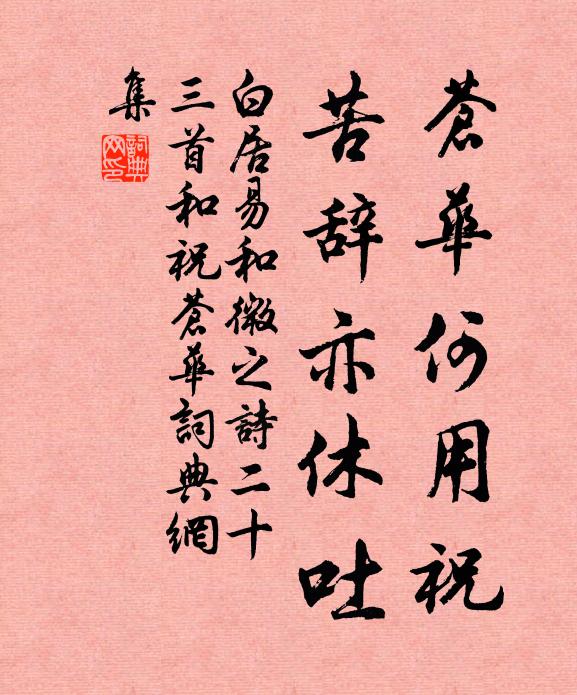 蒼華何用祝
苦辞亦休吐
白居易和微之詩二十
三首和祝蒼華詞典網
集
詞典
网印